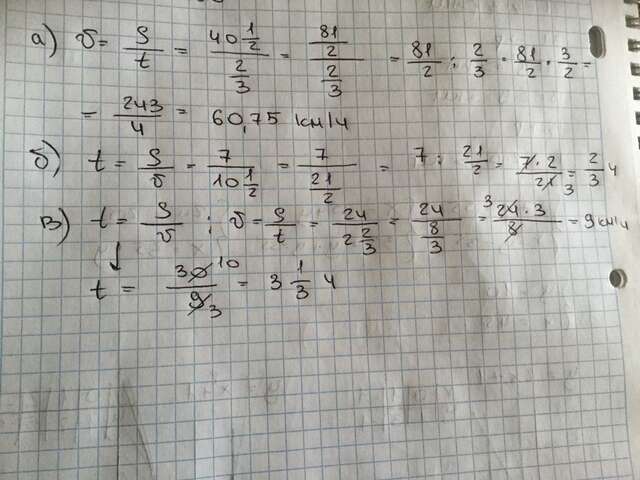 а) v = S/t = 40 1/2 / 2/3 = 81/2 / 2/3 = 81/2 : 2/3 = 81/2 · 3/2 =
= 243/4 = 60,75 км/ч
б) t = S/v = 7 / 10 1/2 = 7 / 21/2 = 7 : 21/2 = 7·2/21 3 = 2/3 ч
в) t = S/v ; v = S/t = 24 / 2 2/3 = 24 / 8/3 = 3 24·3/8 = 9 км/ч
↓
t = 30 10/9 3 = 3 1/3 ч